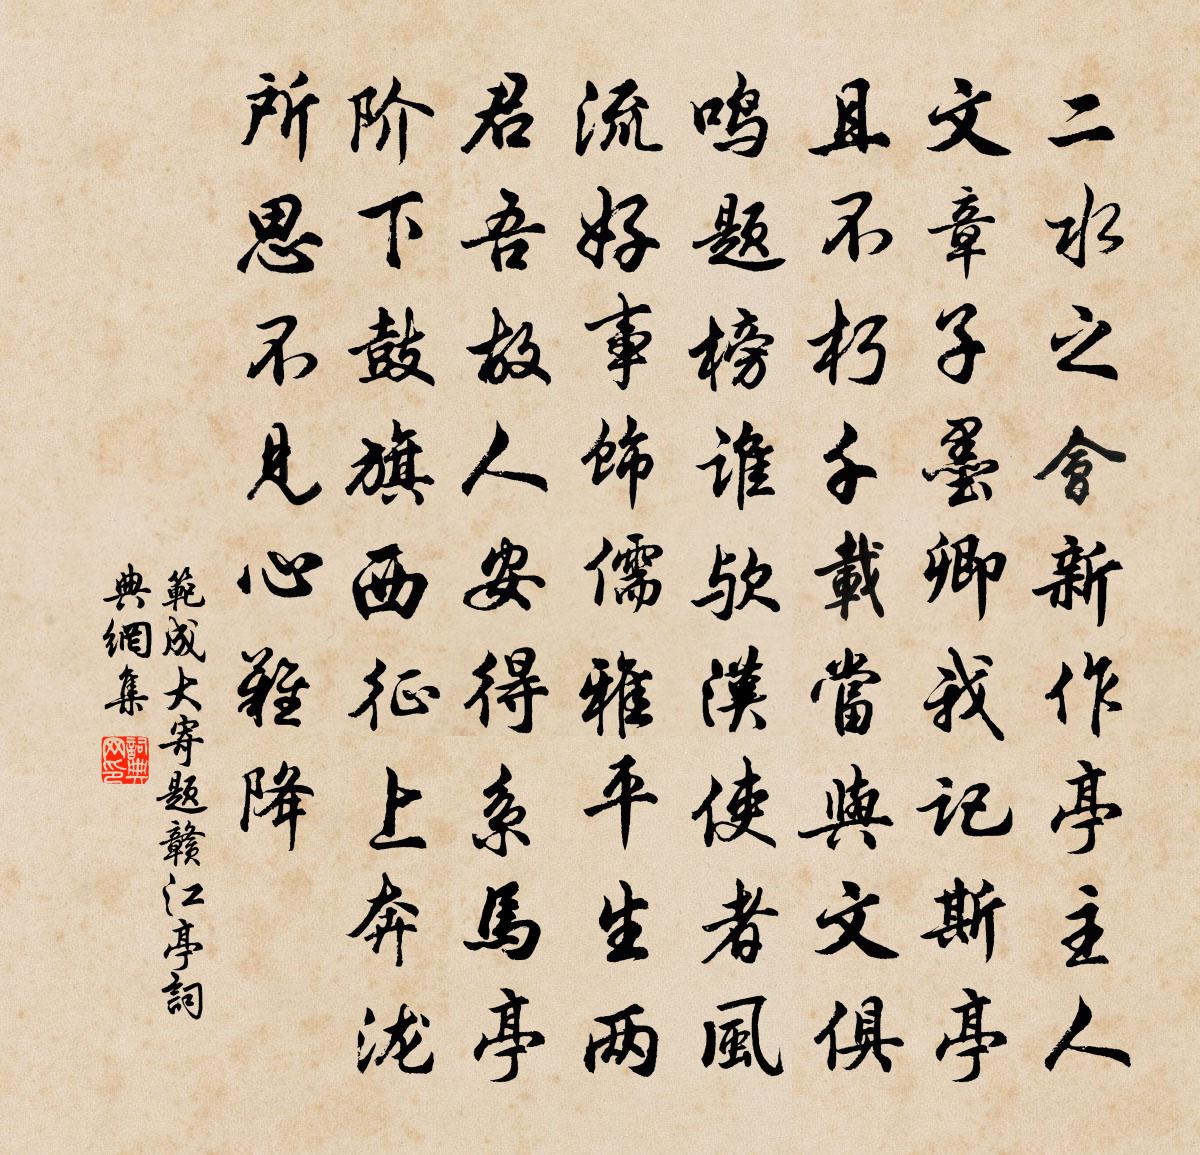 二水之會新作亭主人
文章子墨卿我记斯亭
且不朽千載當與文俱
鸣题榜谁欤漢使者風
流好事饰儒雅平生两
君吾故人安得系馬亭
阶下鼓旗西征上奔泷
所思不見心難降
範成大寄题贛江亭詞
典網集
詞典网印